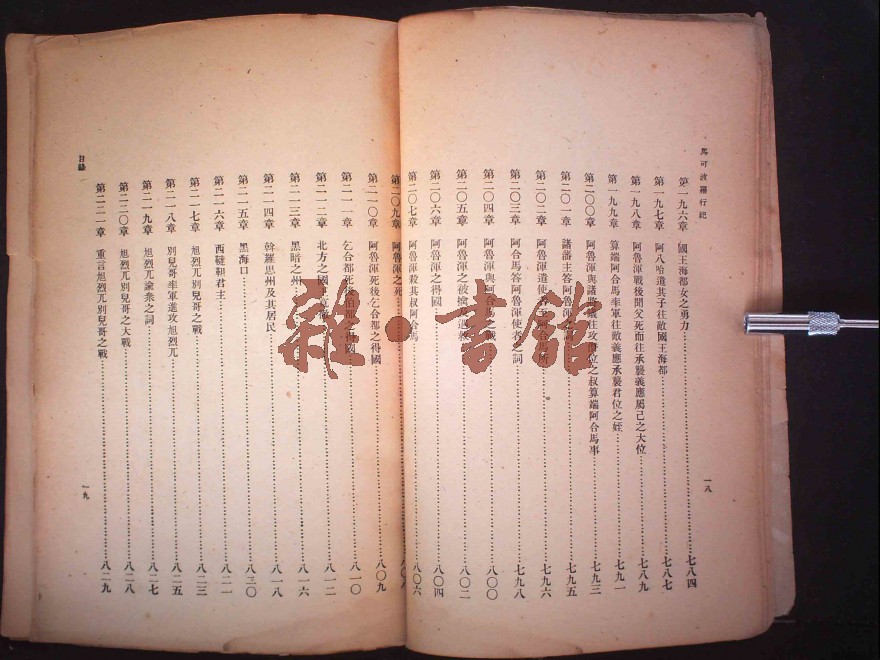 馬可波羅行紀
第一九六章 國王海都女之勇力……七八四
第一九七章 阿八哈遣其子往敵國王海都……七八七
第一九八章 阿魯渾戰後聞父死而往承襲義應屬己之大位……七八九
第一九九章 算端阿合馬率軍往敵義應承襲君位之姪……七九一
第二〇〇章 阿魯渾與諸將議往攻僭位之叔算端阿合馬事……七九三
第二〇一章 諸藩主答阿魯渾之詞……七九五
第二〇二章 阿魯渾遣使者至阿合馬所……七九六
第二〇三章 阿合馬答阿魯渾使者之詞……七九八
第二〇四章 阿魯渾與阿合馬之戰……八〇〇
第二〇五章 阿魯渾之被擒……八〇二
第二〇六章 阿魯渾之得國……八〇四
第二〇七章 阿魯渾殺其叔阿合馬……八〇六
一八
第二〇九章 阿魯渾之死……八〇八
第二一〇章 阿魯渾死後乞合都之得國……八〇九
第二一一章 乞合都死後伯都之得國……八一〇
第二一二章 北方之國王……八一二
第二一三章 黑暗之州……八一六
第二一四章 斡羅思州及其居民……八一八
第二一五章 黑海口……八二〇
第二一六章 西韃靼君主……八二一
第二一七章 旭烈兀別兒哥之戰……八二三
第二一八章 別兒哥率軍進攻旭烈兀……八二五
第二一九章 旭烈兀諭衆之詞……八二七
第二二〇章 旭烈兀別兒哥之大戰……八二八
第二二一章 重言旭烈兀別兒哥之戰……八二九
目錄
一九
雜·書館